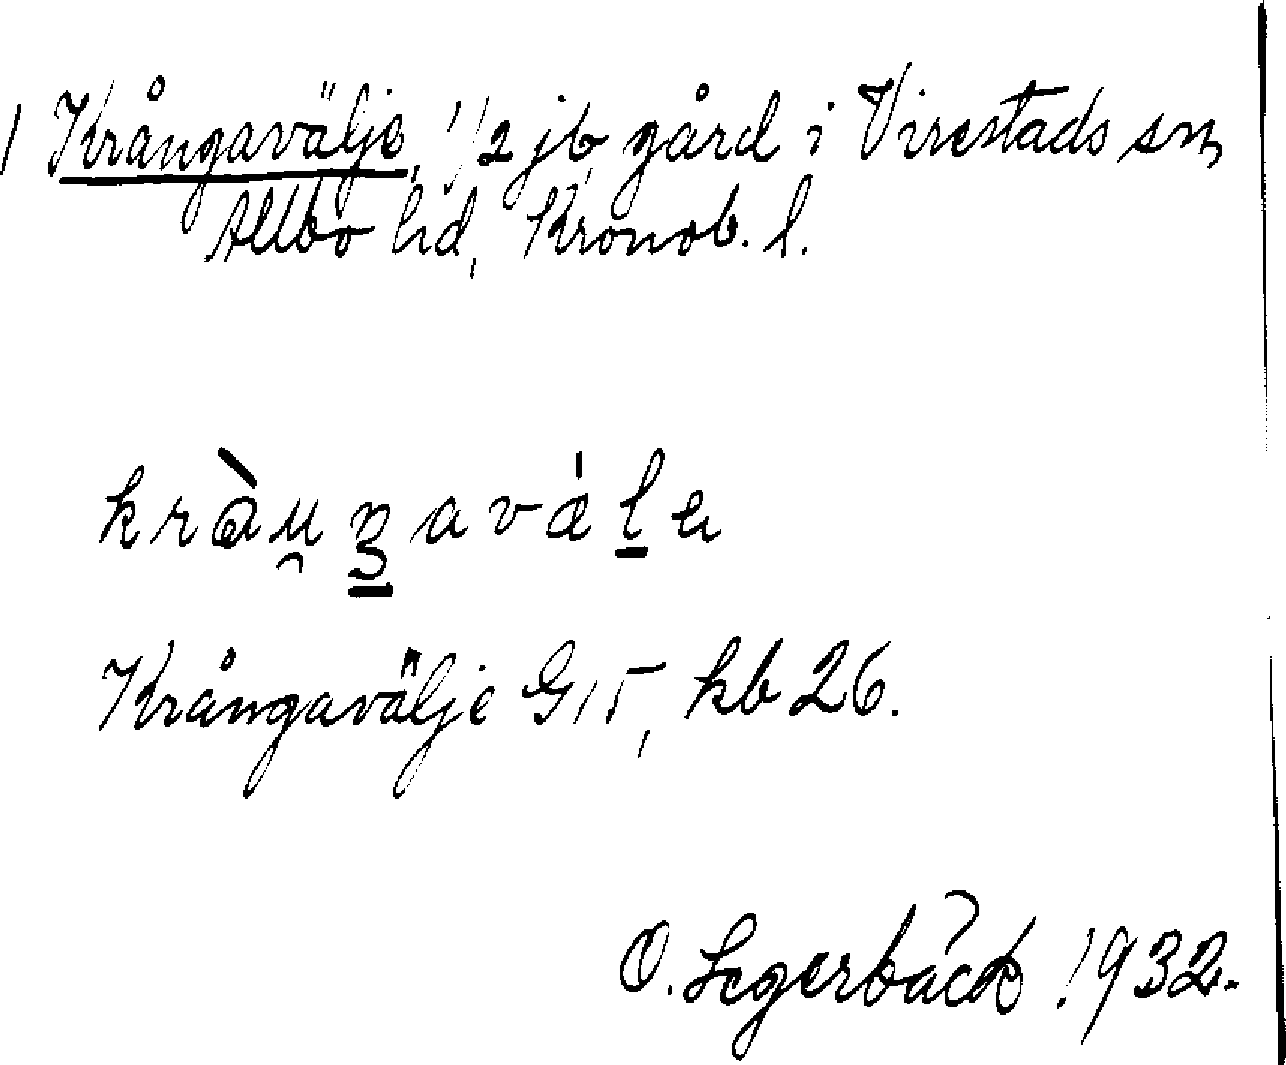 1 Krångavälje, 1/2 jb gård i Virestads sn,
Allbo hd, Kronob. l.
Krångavälje G15, kb 26.
O. Segerbäck 1932.